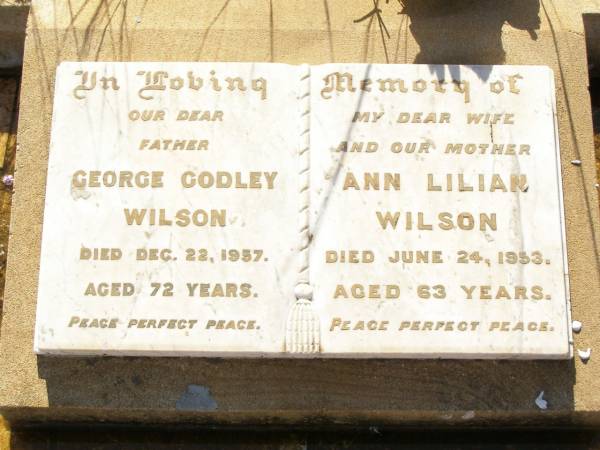 In Loving
OUR DEAR
FATHER
GEORGE GODLEY
WILSON
DIED DEC. 22, 1957.
AGED 72 YEARS.
PEACE PERFECT PEACE.
Memory of
MY DEAR WIFE
AND OUR MOTHER
ANN LILIAN
WILSON
DIED JUNE 24, 1953.
AGED 63 YEARS.
PEACE PERFECT PEACE.